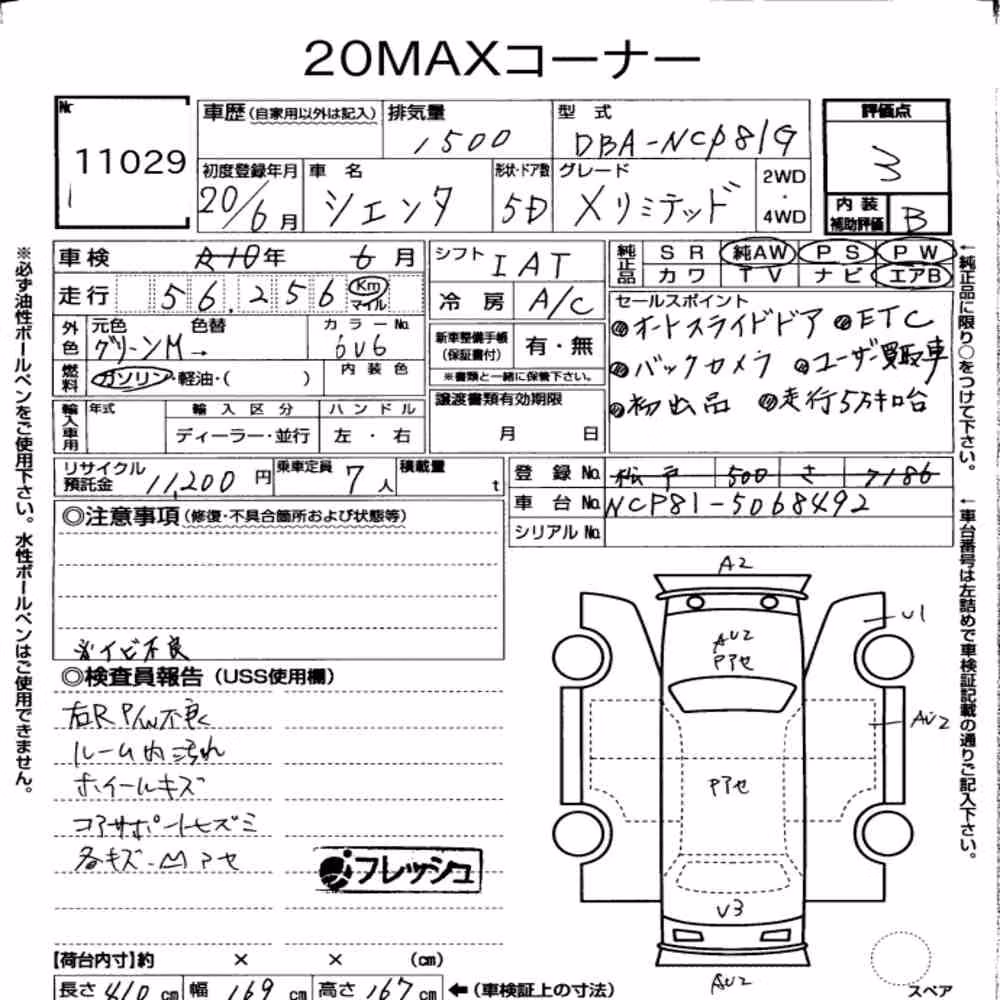 20MAXコーナー
№ 11029
車歴(自家用以外は記入) 排気量 1500 型式 DBA-NCP81G
評価点 3
初度登録年月 20/6月 車名 シエンタ 形状・ドア数 5D グレード Xリミテッド 2WD・4WD
内装補助評価 B
車検 年 6月 シフト IAT 純正品 SR 純AW PS PW
カワ TV ナビ エアB
走行 56,256 Km マイル 冷房 A/C
外色 元色 グリーンM→ 色替 カラーNo. 6V6
新車整備手帳(保証書付) 有・無
※書類と一緒に保管下さい。
セールスポイント
オートスライドドア ETC
バックカメラ ユーザー買取車
初出品 走行5万キロ台
燃料 ガソリン・軽油・( ) 内装色
輸入車用 年式 輸入区分 ハンドル
ディーラー・並行 左・右
譲渡書類有効期限
月 日
リサイクル預託金 11,200円 乗車定員 7人 積載量 t
登録No. 松戸 500 さ 7186
車台No. NCP81-5068492
シリアルNo.
◎注意事項(修復・不具合箇所および状態等)
◎検査員報告(USS使用欄)
右R P/W不良
ルーム内汚れ
ホイールキズ
コアサポートヒズミ
各キズ-Mアセ
フレッシュ
A2
U1
AU2
Pアセ
AU2
Pアセ
V3
AU2
スペア
【荷台内寸】約 × × (cm)
長さ 410cm 幅 169cm 高さ 167cm ←(車検証上の寸法)
※必ず油性ボールペンをご使用下さい。水性ボールペンはご使用できません。
←純正品に限り○をつけて下さい。
←車台番号は左詰めで車検証記載の通りご記入下さい。